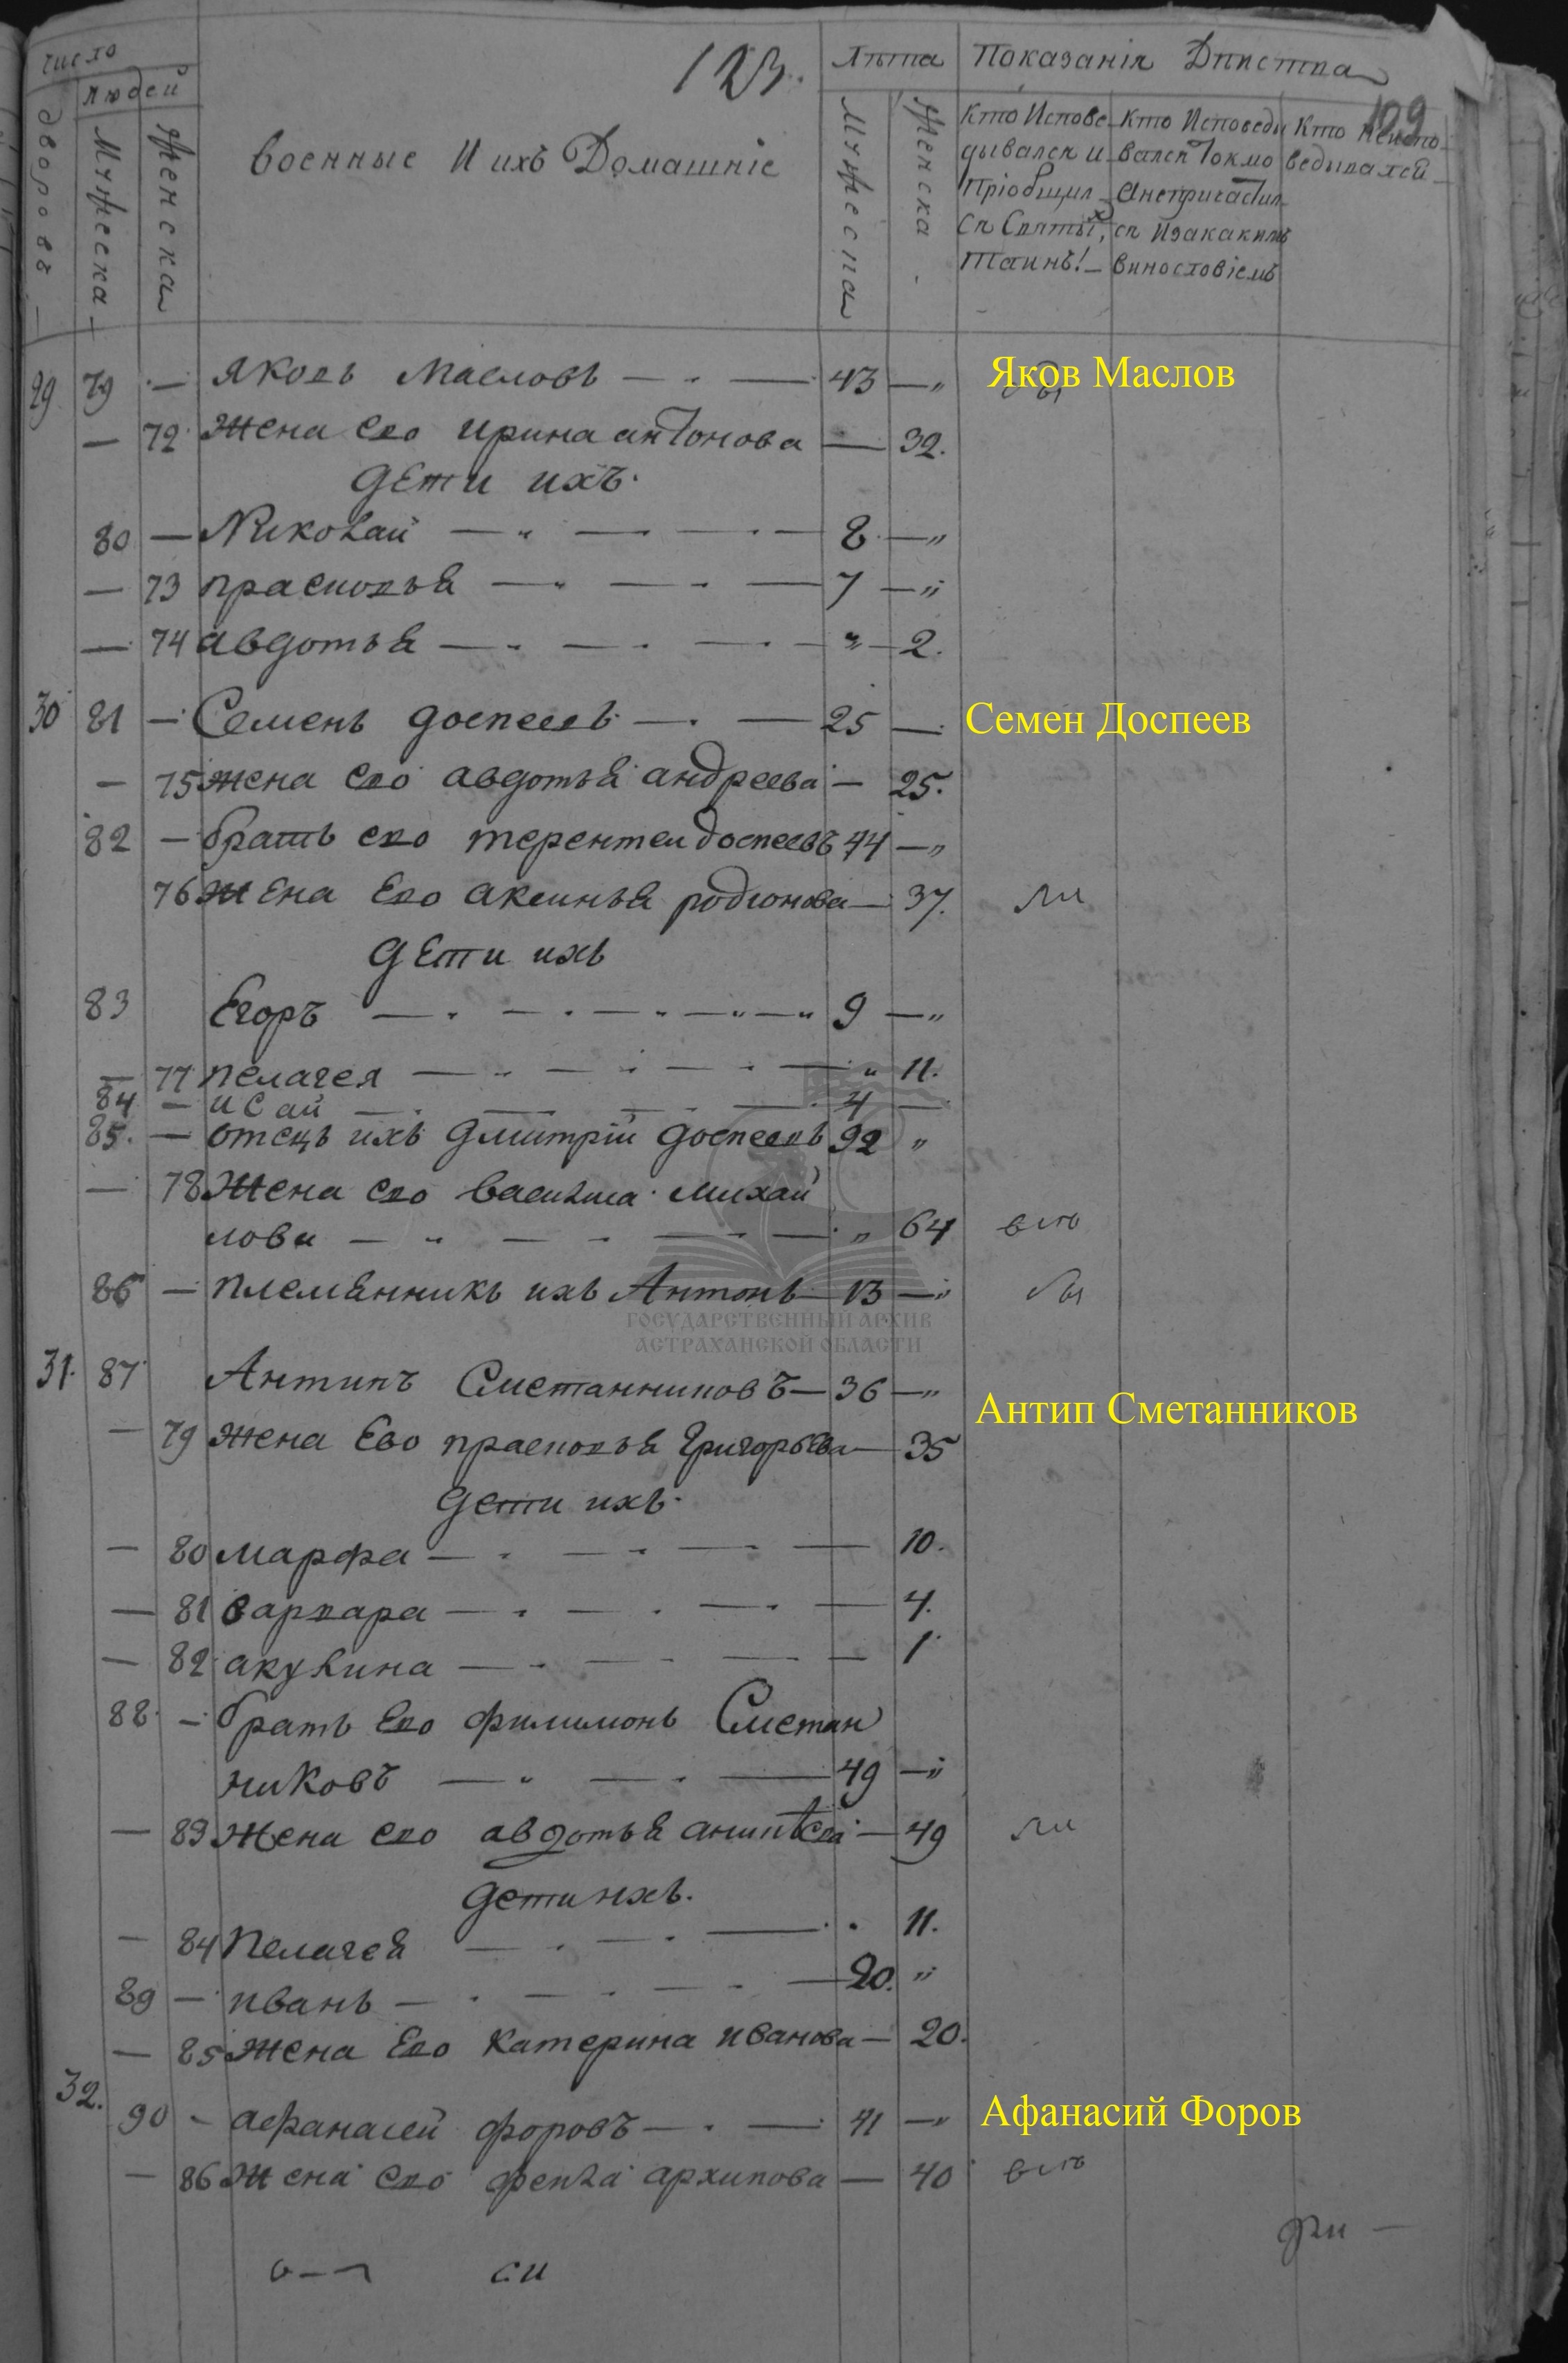 число
людей
дворовъ
Мужеска
Женска
123.
военные И ихъ Домашніе
Лѣта
Мужеска
Женска
Показанія Дѣйства
109
Кто Испове-
дывался и
Пріобщил-
ся Святых,
Таинъ!
Кто Исповеды
вался Токмо
Анепричастил
ся Изакакимъ
винословіемъ
Кто Неиспо-
ведывался
29 79 Яковъ Масловъ 43 Яков Маслов
72 Жена ево Ирина антонова 32.
дети ихъ.
80 Николай 8
73 прасковья 7
74 авдотья 2.
30 81 Семенъ доспеевъ 25 Семен Доспеев
75 жена ево авдотья андреева 25.
82 братъ ево терентеи доспеевъ 44
76 жена Ево аксинья родионова 37. ли
дети ихъ
83 Егоръ 9
77 пелагея 11.
84 исай 4
85. отецъ ихъ дмитрій доспеевъ 92
78 Жена ево василиса михай
лова 64
86 племянникъ ихъ Антонъ 13
ГОСУДАРСТВЕННЫЙ АРХИВ
АСТРАХАНСКОЙ ОБЛАСТИ
31. 87 Антипъ Сметанниковъ 36
Антип Сметанников
79 жена Ево прасковья григорьева 35
дети ихъ.
80 марфа 10.
81 варвара 4.
82 акулина 1
88. братъ Ево филимонъ Сметан
никовъ 49
83 Жена ево авдотья 49 ли
дети ихъ.
84 Пелагея 11.
89 иванъ 20.
85 жена Ево катерина иванова 20.
32. 90 афанасей форовъ 41 Афанасий Форов
86 Жена ево фекла архипова 40
си